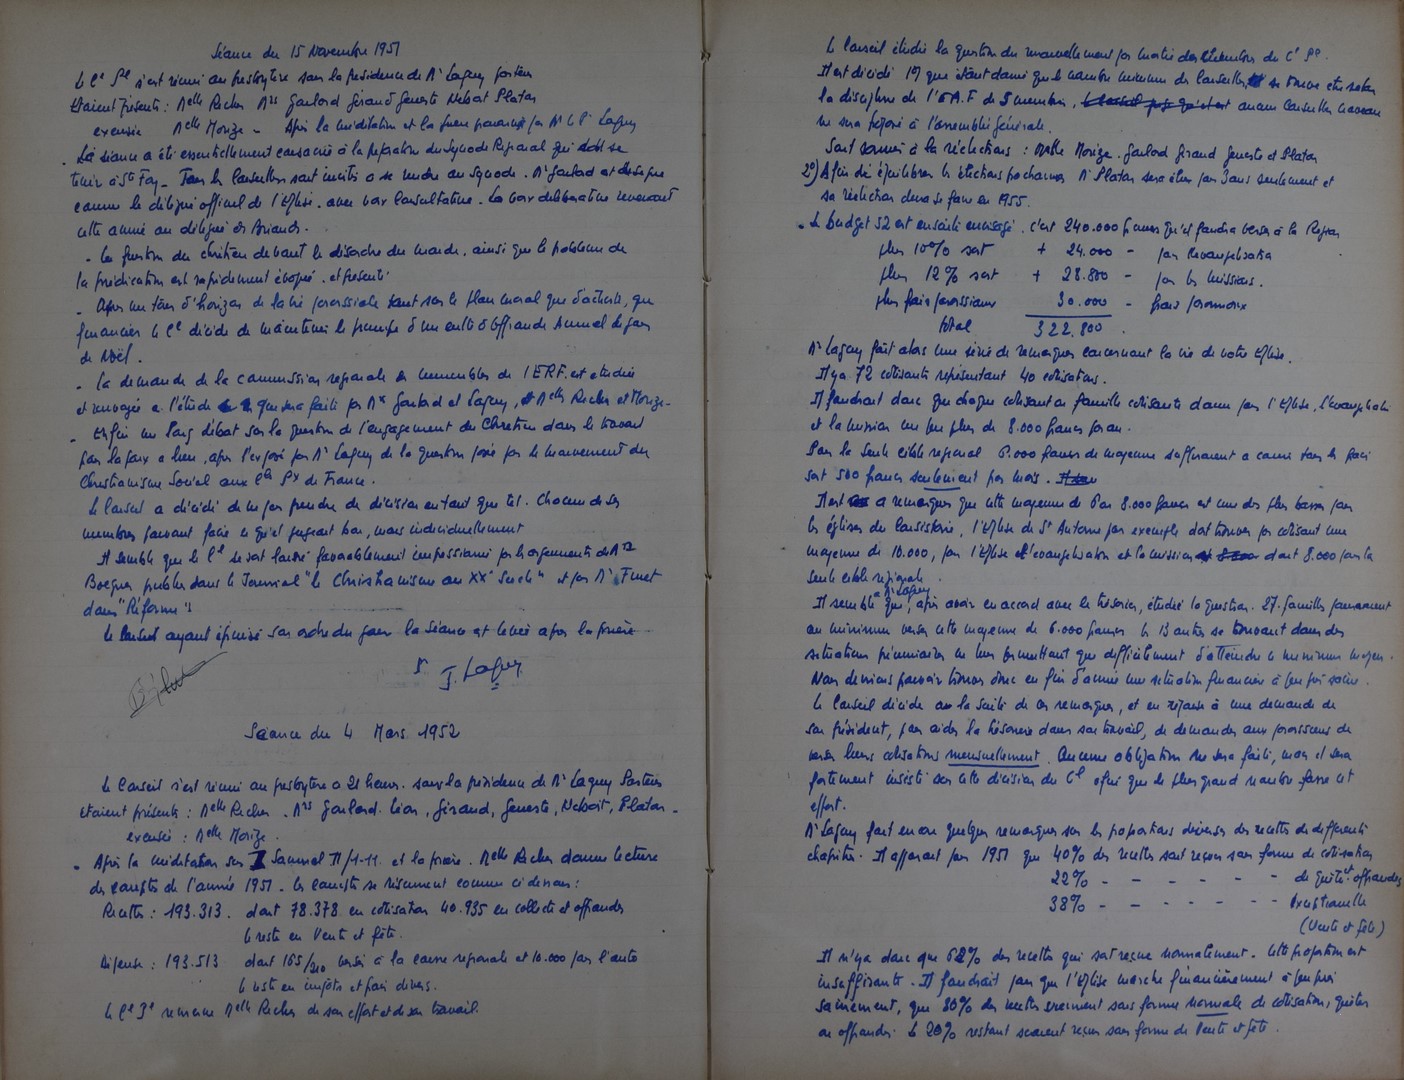 Séance du 15 Novembre 1951
Le Cl Pl s'est réuni au presbytère sous la présidence de Mr Laguy pasteur
Etaient présents : Melle Richer Mrs Goulard Giraud Geneste Nebout Platon
excusée Melle Morize - Après la méditation et la prière prononcée par Mr le Pr Laguy
. La séance a été essentiellement consacrée à la préparation du Synode Régional qui doit se
tenir à Ste Foy - Tous les Conseillers sont invités à se rendre au Synode. Mr Goulard est désigné
comme le délégué officiel de l'Eglise. avec voix consultative. La voix délibérative revenant
cette année au délégué de
- La question du chrétien devant le désordre du monde. ainsi que le problème de
la prédication est rapidement et présenté
- Après un tour d'horizon de la vie paroissiale tant sur le plan moral que d'activité, que
financier le Cl décide de maintenir le principe d'un culte d'offrande Annuel le jour
de Noël.
- La demande de la commission régionale immeubles de l'ERF. est étudiée
et renvoyée à l'étude qui sera faite par Mrs Goulard et Laguy, et Melles Richer et Morize -
- Enfin un long débat sur la question de l'engagement du Chrétien dans le travail
pour la paix a lieu, après l'exposé par Mr Laguy de la question posée par le mouvement du
Christianisme Social aux Cls Px de France.
Le Conseil a décidé de ne pas prendre de décision en tant que tel. Chacun de ses
membres pouvant faire ce qu'il jugeait bon, mais individuellement
Il semble que le Cl se soit laissé favorablement impressionné par les arguments de Mr
Boegner publiés dans le Journal "le Christianisme au XXe Siècle" et par Mr Finet
dans "Réforme".
Le Conseil ayant épuisé son ordre du jour la Séance est levée après la prière
J. Laguy
Séance du 4 Mars 1952
Le Conseil s'est réuni au presbytère à 21 heures. sous la présidence de Mr Laguy Pasteur
étaient présents : Melle Richer. Mrs Goulard. Léon, Giraud, Geneste, Nebout, Platon -
excusée : Melle Morize.
- Après la méditation sur I Samuel II/1-11. et la prière. Melle Richer donne lecture
des comptes de l'année 1951. les comptes se résument comme ci dessous :
Recettes : 193.313. dont 78.378 en cotisation 40.935 en collecte et offrandes
le reste en Vente et fête.
Dépense : 193.513 dont 165/310 versé à la caisse régionale et 10.000 par l'autre
le reste en impôts et frais divers.
Le Cl Pl remercie Melle Richer de son effort et de son travail.
Le Conseil étudie la question du renouvellement par moitié des Membres du Cl Pl.
Il est décidé 1°) que étant donné que le nombre minimum des Conseillers se trouve être selon
la discipline de l'E.R.F de 5 membres, aucun Conseiller nouveau
ne sera proposé à l'assemblée Générale.
Sont soumis à la réélections : Melle Morize. Goulard Giraud Geneste et Platon
2°) Afin de équilibrer les élections prochaines Mr Platon sera élu pour 3 ans seulement et
sa réélection devra se faire en 1955.
- Le budget 52 est ensuite envisagé. c'est 240.000 francs qu'il faudra verser à la Région
plus 10% soit + 24.000 - pour l'évangélisation
plus 12% soit + 28.800 - pour les missions.
plus frais paroissiaux 30.000 - frais paroissiaux
total 322.800.
Mr Laguy fait alors une série de remarques concernant la vie de notre Eglise.
Il y a 72 cotisants représentant 40 cotisations.
Il faudrait donc que chaque cotisant ou famille cotisante donne pour l'Eglise, l'évangélisation
et la mission un peu plus de 8.000 francs par an.
Pour la seule cible régional 6.000 francs de moyenne suffiraient à couvrir tous les frais
soit 500 francs seulement par mois.
Il est à remarquer que cette moyenne de 6 ou 8.000 francs est une des plus basses parmi
les églises du Consistoire, l'Eglise de St Antoine par exemple doit trouver par cotisant une
moyenne de 10.000, pour l'Eglise l'évangélisation et la mission dont 8.000 pour la
seule cible régionale.
Il semble à Mr Laguy que, après avoir en accord avec le trésorier, étudié la question. 27. familles pourraient
au minimum verser cette moyenne de 6.000 francs les 13 autres se trouvant dans des
situations pécuniaires ne leur permettant que difficilement d'atteindre ce minimum moyen.
Nous devrions pouvoir trouver donc en fin d'année une situation financière à peu près saine.
Le Conseil décide à la suite de ces remarques, et en réponse à une demande de
son président, pour aider la trésorière dans son travail, de demander aux paroissiens de
verser leurs cotisations mensuellement. Aucune obligation ne sera faite, mais il sera
fortement insisté sur cette décision du Cl afin que le plus grand nombre fasse cet
effort.
Mr Laguy fait encore quelques remarques sur les proportions diverses des recettes de différents
chapitres. Il apparait pour 1951 que 40% des recettes sont reçues sous forme de cotisation
22% - - - - - - - de quêtes et offrandes
38% - - - - - - - exceptionnelle
(Vente et fête)
Il n'y a donc que 62% des recettes qui soit reçue normalement. Cette proportion est
insuffisante. Il faudrait pour que l'Eglise marche financièrement à peu près
sainement, que 80% des recettes viennent sous forme normale de cotisation, quêtes
ou offrandes. Le 20% restant seraient reçus sous forme de Vente et fête.